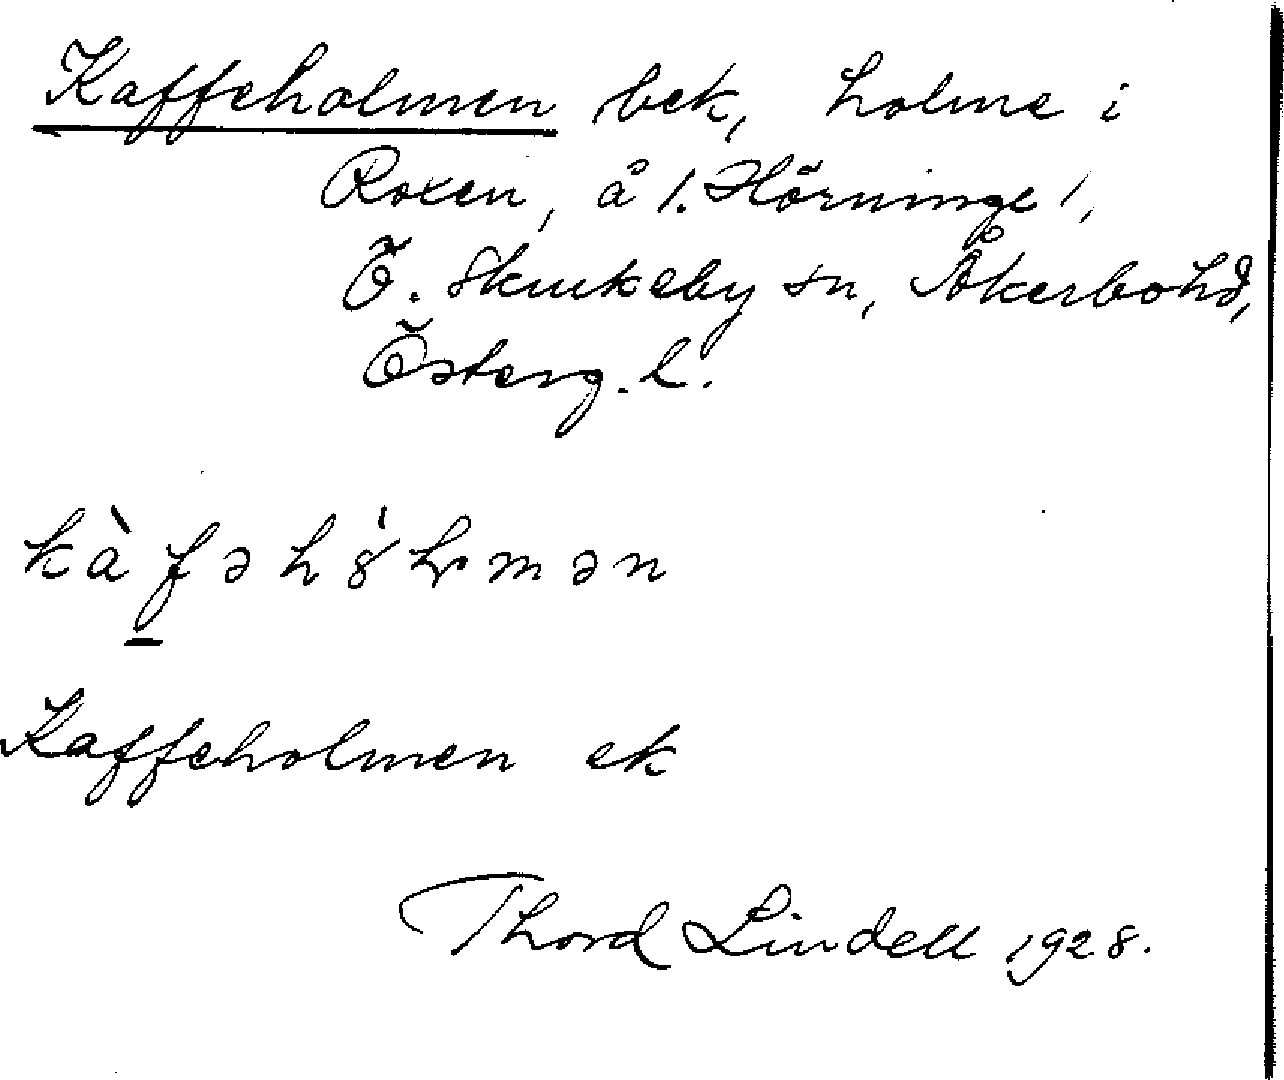 Kaffeholmen bek, holme i
Roxen, å 1. Hörninge 1,
Ö. Skrukeby sn, Åkerbohd,
Österg. l.
kàfəhȣ́lmən
Kaffeholmen ek
Thord Lindell 1928.